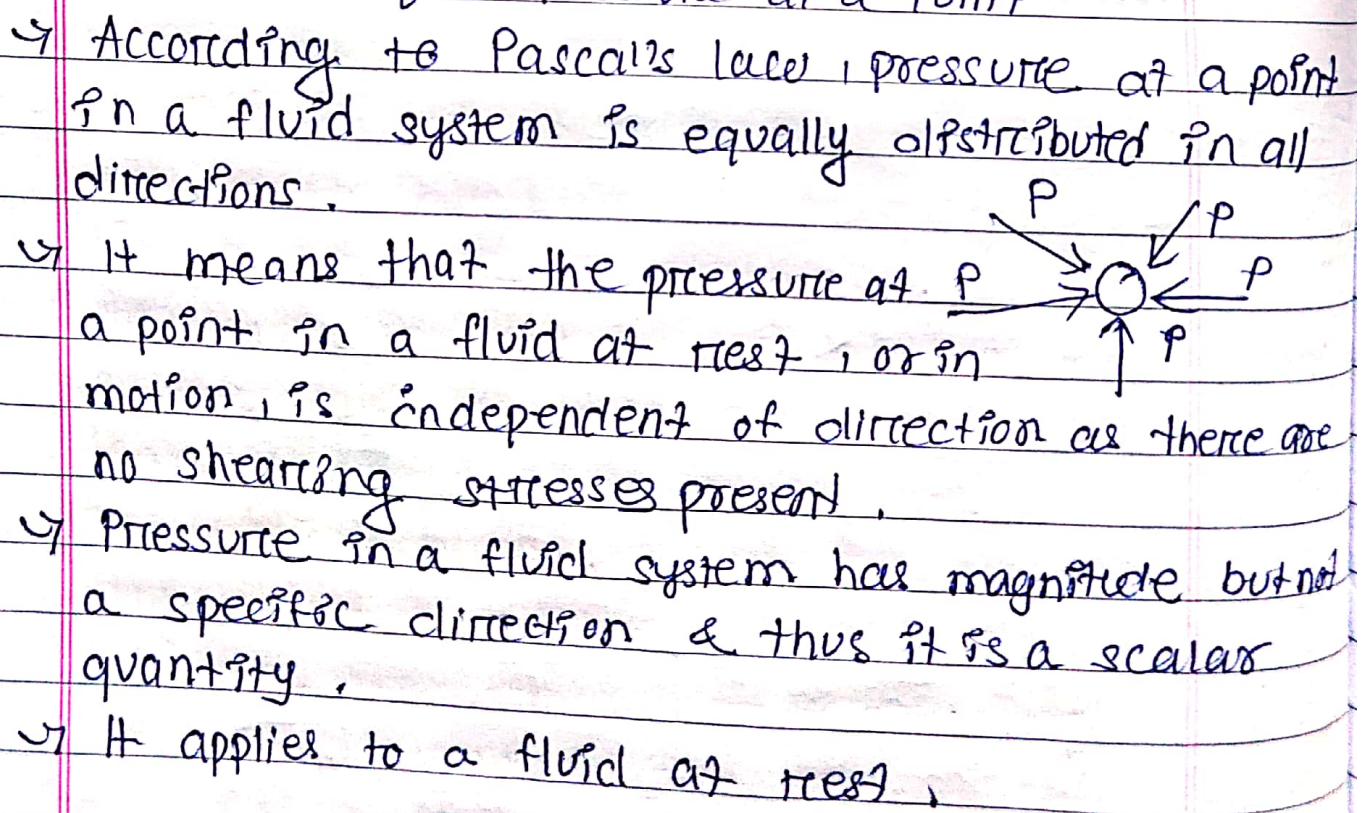 According to Pascal's law, pressure at a point
in a fluid system is equally distributed in all
directions.
It means that the pressure at
a point in a fluid at rest, or in
motion, is independent of direction as there are
no shearing stresses present.
Pressure in a fluid system has magnitude but not
a specific direction & thus it is a scalar
quantity.
It applies to a fluid at rest,
P
P
P
P
P